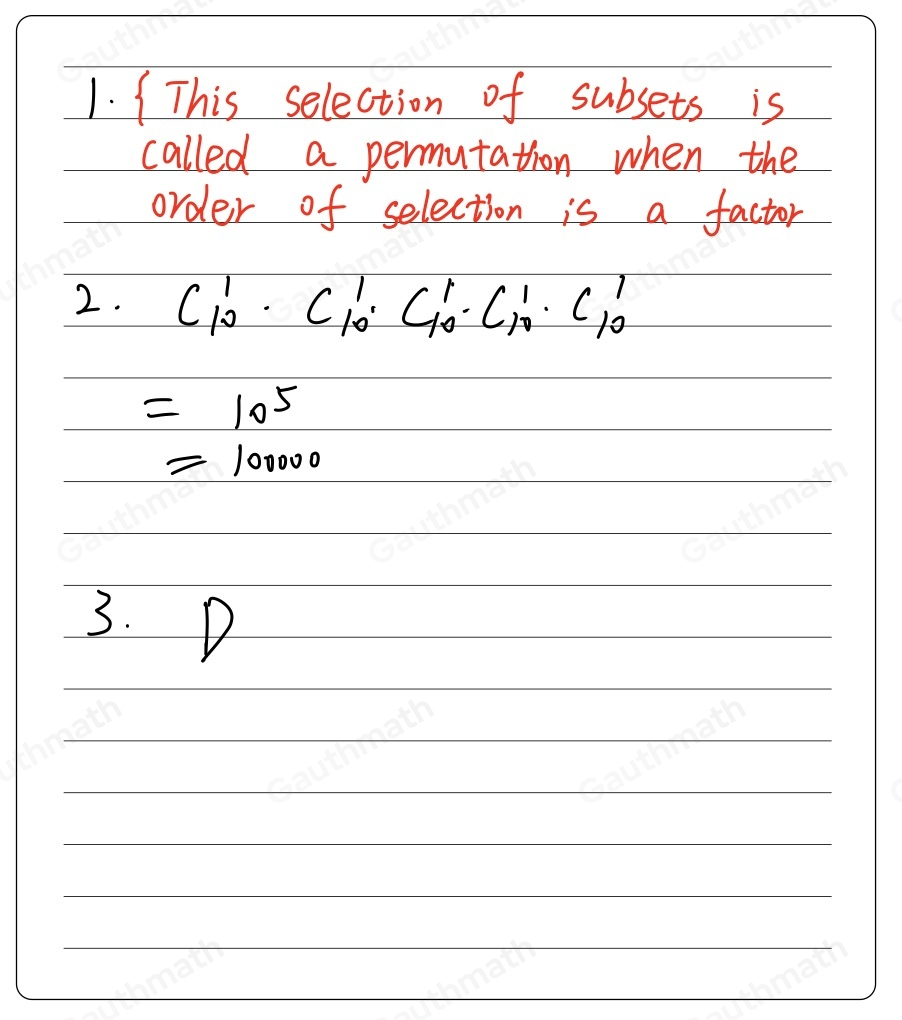 1. { This selection of subsets is
called a permutation when the
order of selection is a factor
2. C₁₀¹ · C₁₀¹ · C₁₀¹ · C₁₀¹ · C₁₀¹
= 10⁵
= 100000
3. D